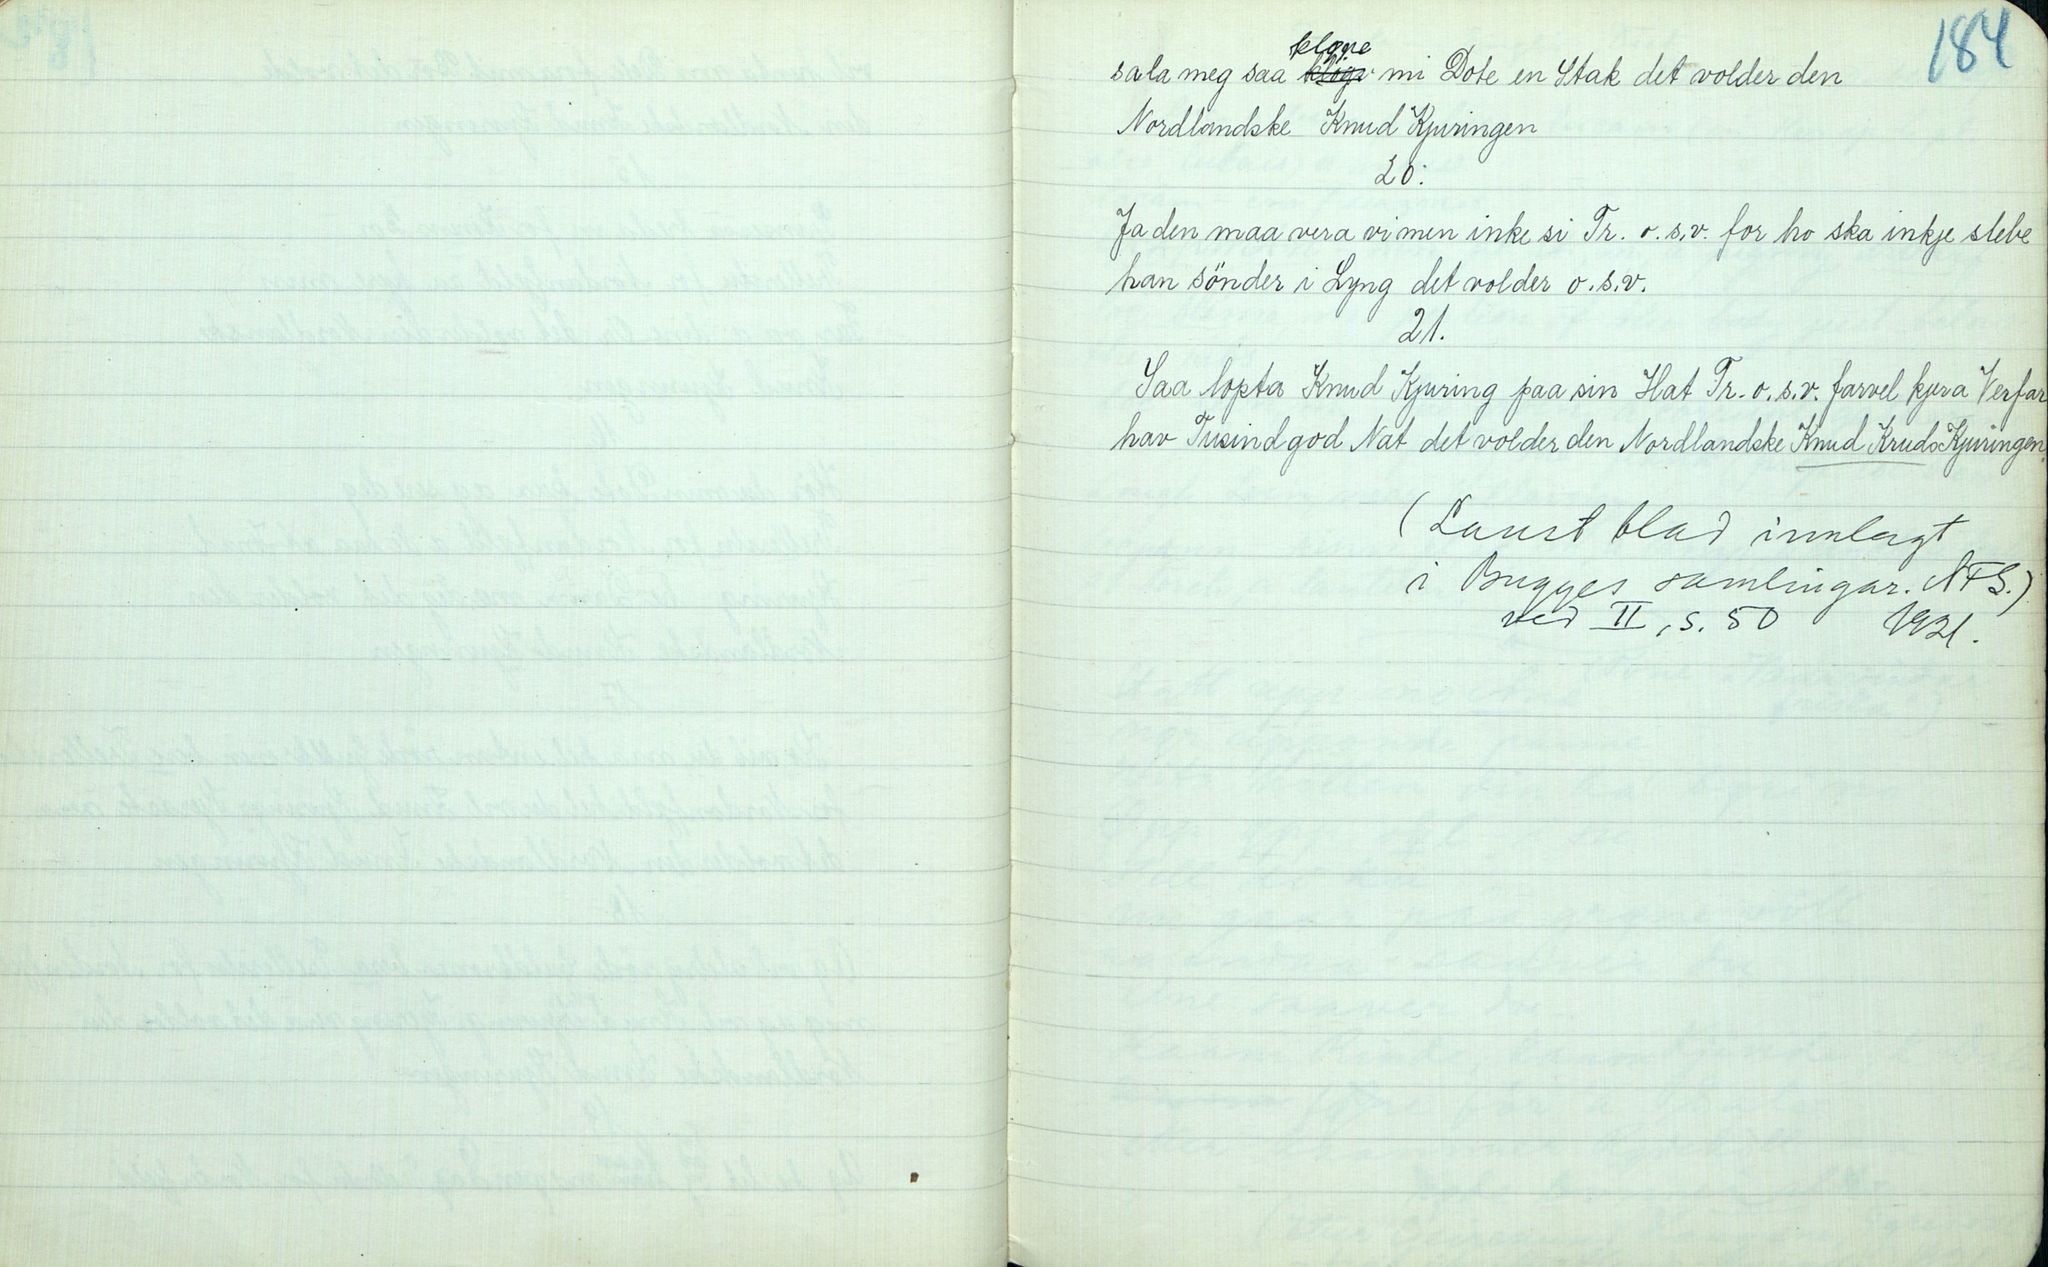 184
sala meg saa kløve mi Dote en Stak det volder den
Nordlandske Knud Kjuringen
20.
Ja den maa vera vi men inke si Tr. o.s.v. for ho ska inkje slebe
han sönder i Lyng det volder o.s.v.
21.
Saa lopta Knud Kjuring paa sin Hat Tr. o.s.v. farvel kjæra Verfar
hav Tusind god Nat det volder den Nordlandske Knud Knuds Kjuringen.
(Laust blad innlagt
i Bugges samlingar. NFS.)
ved II, s. 50 1921.